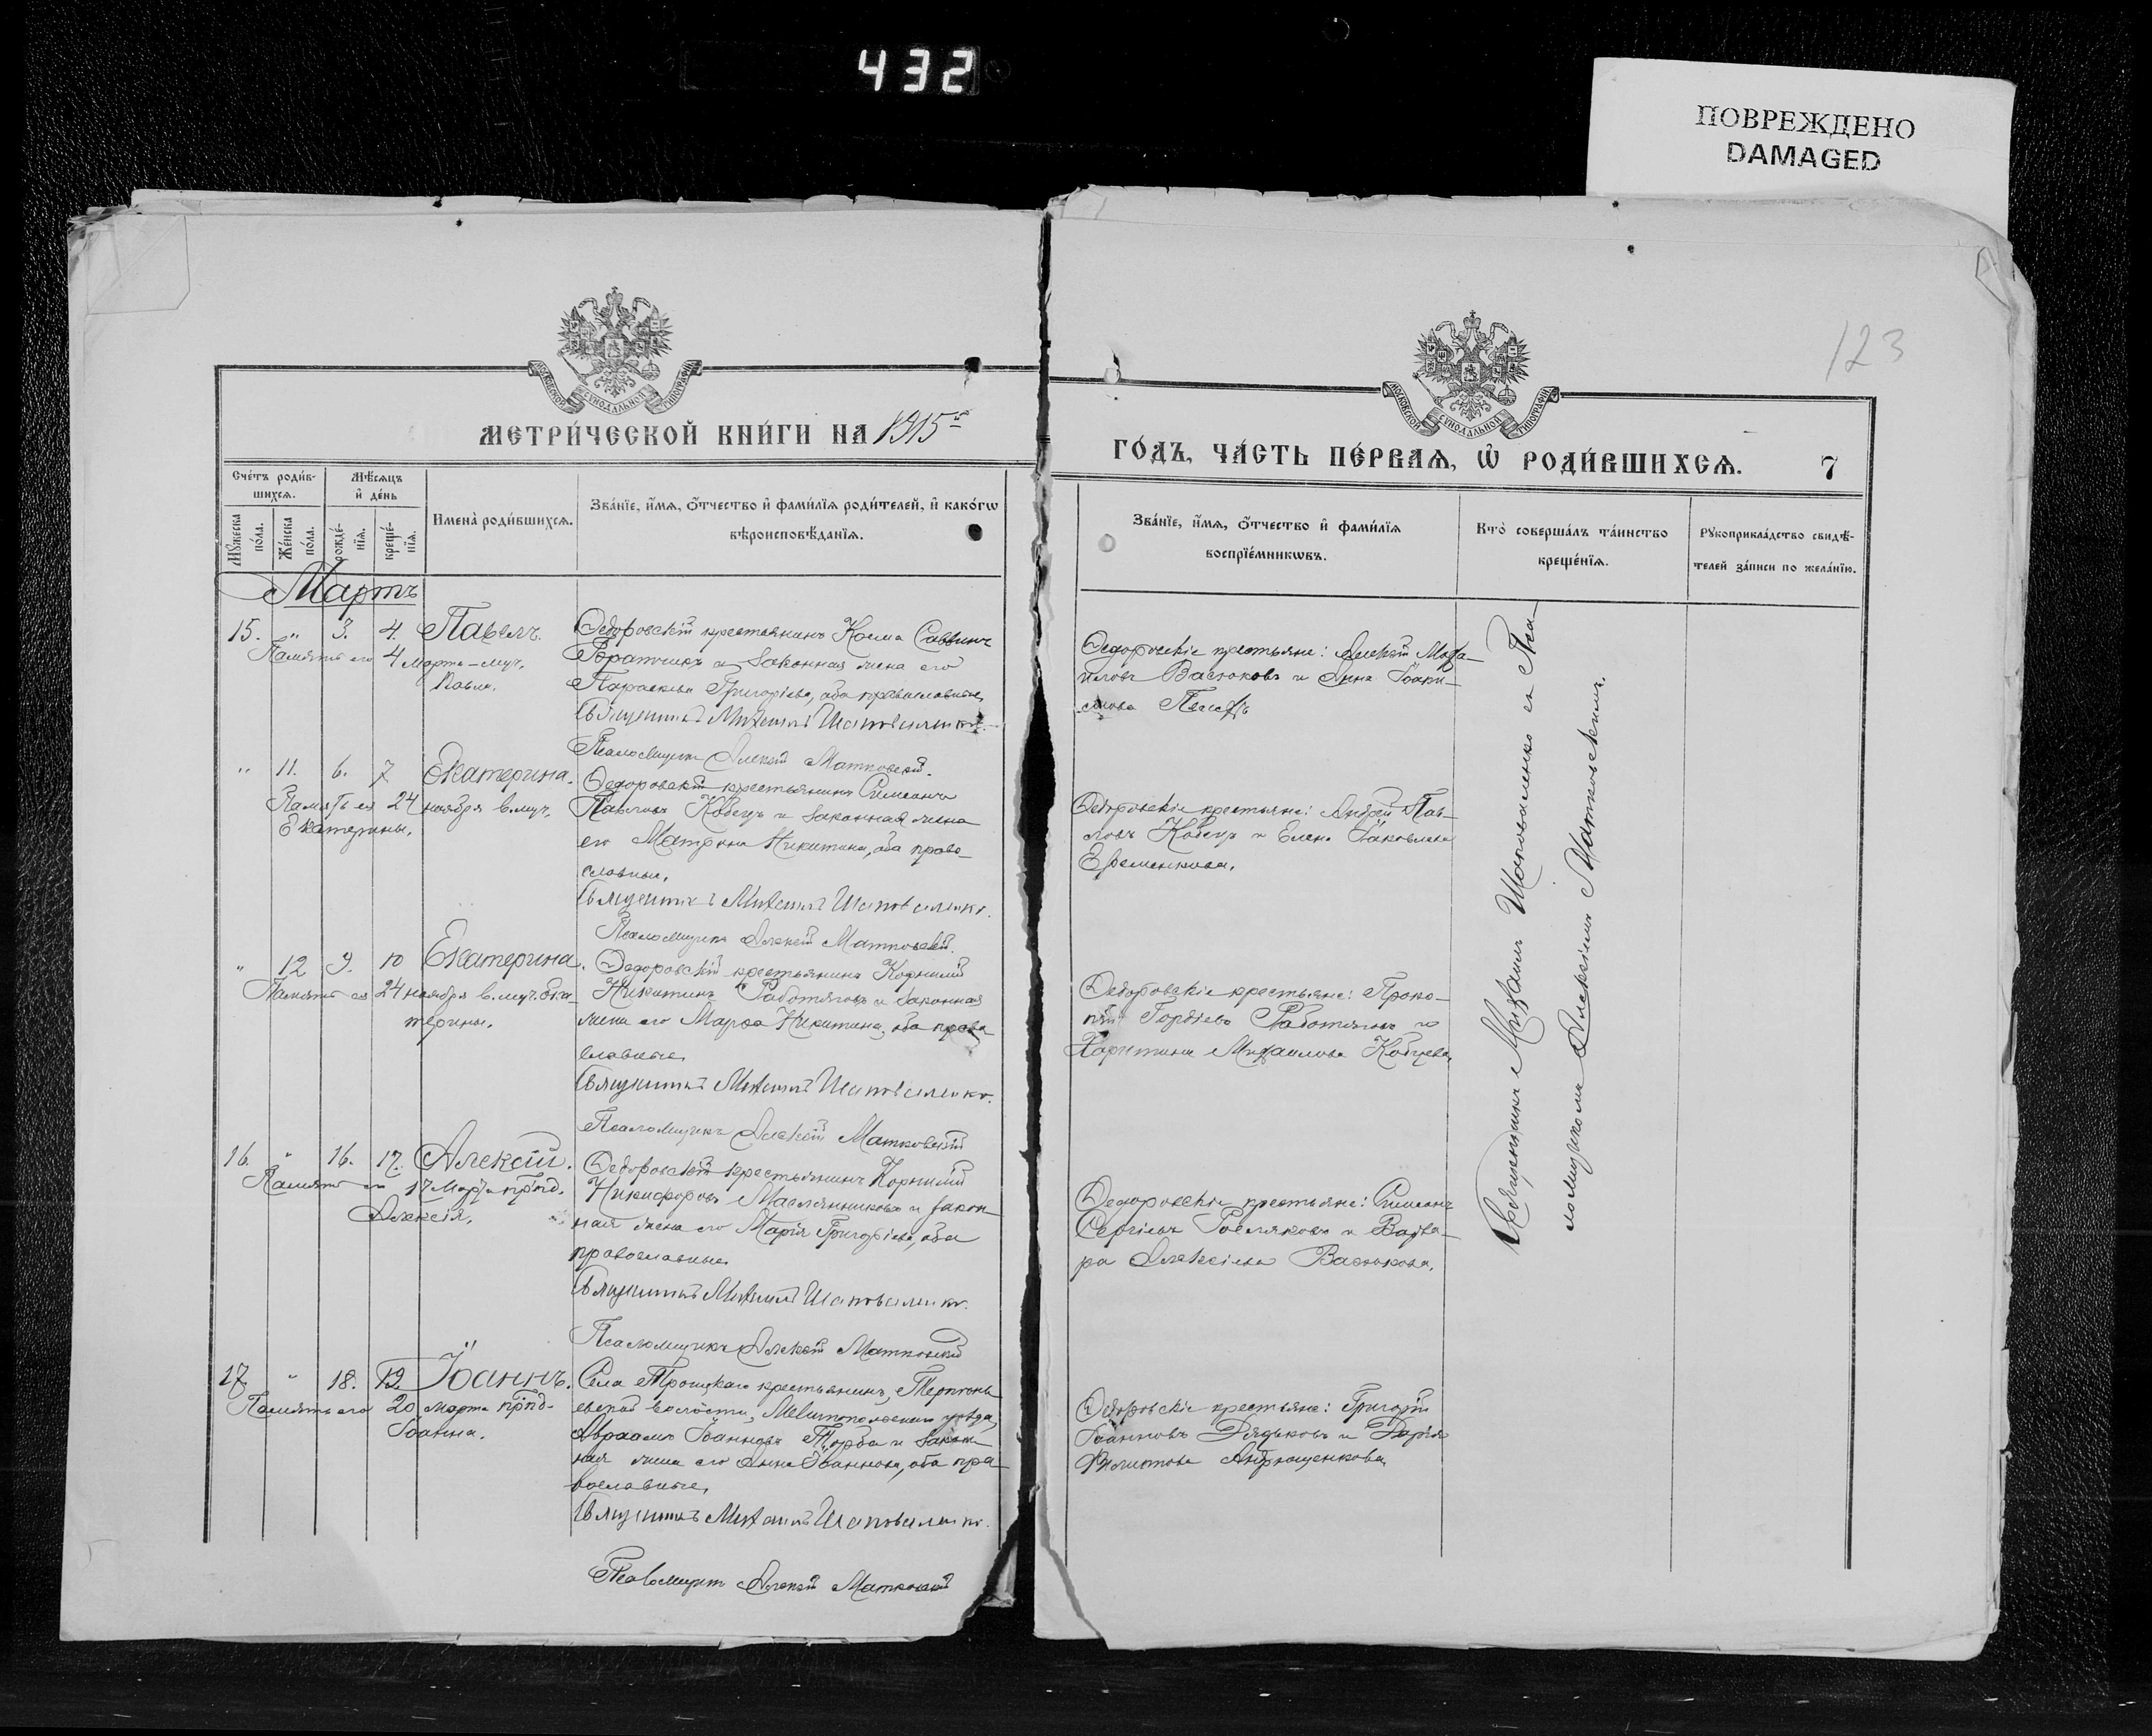 432
ПОВРЕЖДЕНО
DAMAGED
123
МОСКОВСКОЙ СѴНОДАЛЬНОЙ ТИПОГРАФІИ
МОСКОВСКОЙ СѴНОДАЛЬНОЙ ТИПОГРАФІИ
МЕТРИ́ЧЕСКОЙ КНИ́ГИ НА 1915 й
ГО́ДЪ, ЧА́СТЬ ПЕ́РВАѦ, Ѽ РОДИ́ВШИХСѦ.
7
Сче́тъ роди́в-
шихсѧ.
Мѣ́сѧцъ
и҆ де́нь
Мꙋ́жеска
по́ла.
Же́нска
по́ла.
рожде́-
нїѧ.
креще́-
нїѧ.
И҆мена̀ роди́вшихсѧ.
Зва́нїе, и҆́мѧ, ѻ҆́тчество и҆ фами́лїѧ роди́телей, и҆ како́гѡ
вѣроисповѣ́данїѧ.
Зва́нїе, и҆́мѧ, ѻ҆́тчество и҆ фами́лїѧ
воспрїе́мникѡвъ.
Кто̀ соверша́лъ та́инство
креще́нїѧ.
Рꙋкоприкла́дство свидѣ́-
телей за́писи по жела́нїю.
Мартъ
15. " 3. 4. Павелъ.
Память его 4 марта – муч.
Павла.
Ѳедоровскій крестьянинъ Косма Саввинъ
и законная жена его
Параскева Григоріева, оба православные,
Священникъ Михаилъ Шаповаленко.
Псаломщикъ Алексій Матковскій.
Ѳедоровскіе крестьяне: Алексій Миха-
иловъ Васюковъ и Анна Іоаки-
мова
" 11. 6. 7 Екатерина.
Память ея 24 ноября в.муч.
Екатерины.
Ѳедоровскій крестьянинъ Симеонъ
Павловъ Кобецъ и законная жена
его Матрона Никитина, оба право-
славные.
Священникъ Михаилъ Шаповаленко.
Псаломщикъ Алексій Матковскій.
Ѳедоровскіе крестьяне: Андрей Пав-
ловъ Кобецъ и Елена Іаковлева
Ефременкова.
" 12 9. 10 Екатерина.
Память ея 24 ноября в.муч. Ека-
терины.
Ѳедоровскій крестьянинъ Корнилій
Никитинъ Работяговъ и законная
жена его Марѳа Никитина, оба право-
славные.
Священникъ Михаилъ Шаповаленко.
Псаломщикъ Алексій Матковскій
Ѳедоровскіе крестьяне: Проко-
пій Гордіевъ Работяговъ и
Харитина Михаилова Кобцева.
16. " 16. 17. Алексій.
Память его 17 Марта прпд.
Алексія.
Ѳедоровскій крестьянинъ Корнилій
Никифоровъ Маслянниковъ и закон-
ная жена его Марія Григоріева, оба
православные.
Священникъ Михаилъ Шаповаленко.
Псаломщикъ Алексій Матковскій
Ѳедоровскіе крестьяне: Симеонъ
Сергіевъ Росляковъ и Варва-
ра Алексіева Васюкова.
17 " 18. 19. Іоаннъ.
Память его 20 марта прпд-
Іоанна.
Села Троицкаго крестьянинъ, Терпѣнь-
евской волости, Мелитопольскаго уѣзда,
Авраамъ Іоанновъ Торба и закон-
ная жена его Анна Іоаннова, оба пра-
вославные.
Священникъ Михаилъ Шаповаленко.
Псаломщикъ Алексій Матковскій
Ѳедоровскіе крестьяне: Григорій
Іоанновъ Дядьковъ и Дарія
Филиппова Андрющенкова.
Священникъ Михаилъ Шаповаленко съ Пса-
ломщикомъ Алексіемъ Матковскимъ.